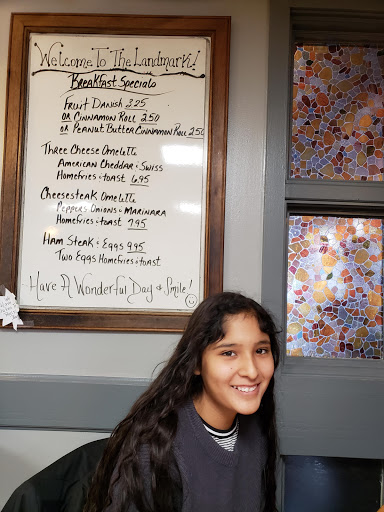 Welcome To The Landmark!
Breakfast Specials
Fruit Danish 325
or Cinnamon Roll 250
or Peanut Butter Cinnamon Roll 250
Three Cheese Omelette
American Cheddar & Swiss
Homefries & toast 695
Cheesesteak Omelette
Peppers Onions & Marinara
Homefries & toast 795
Ham Steak & Eggs 995
Two Eggs Homefries & toast
Have A Wonderful Day & Smile!